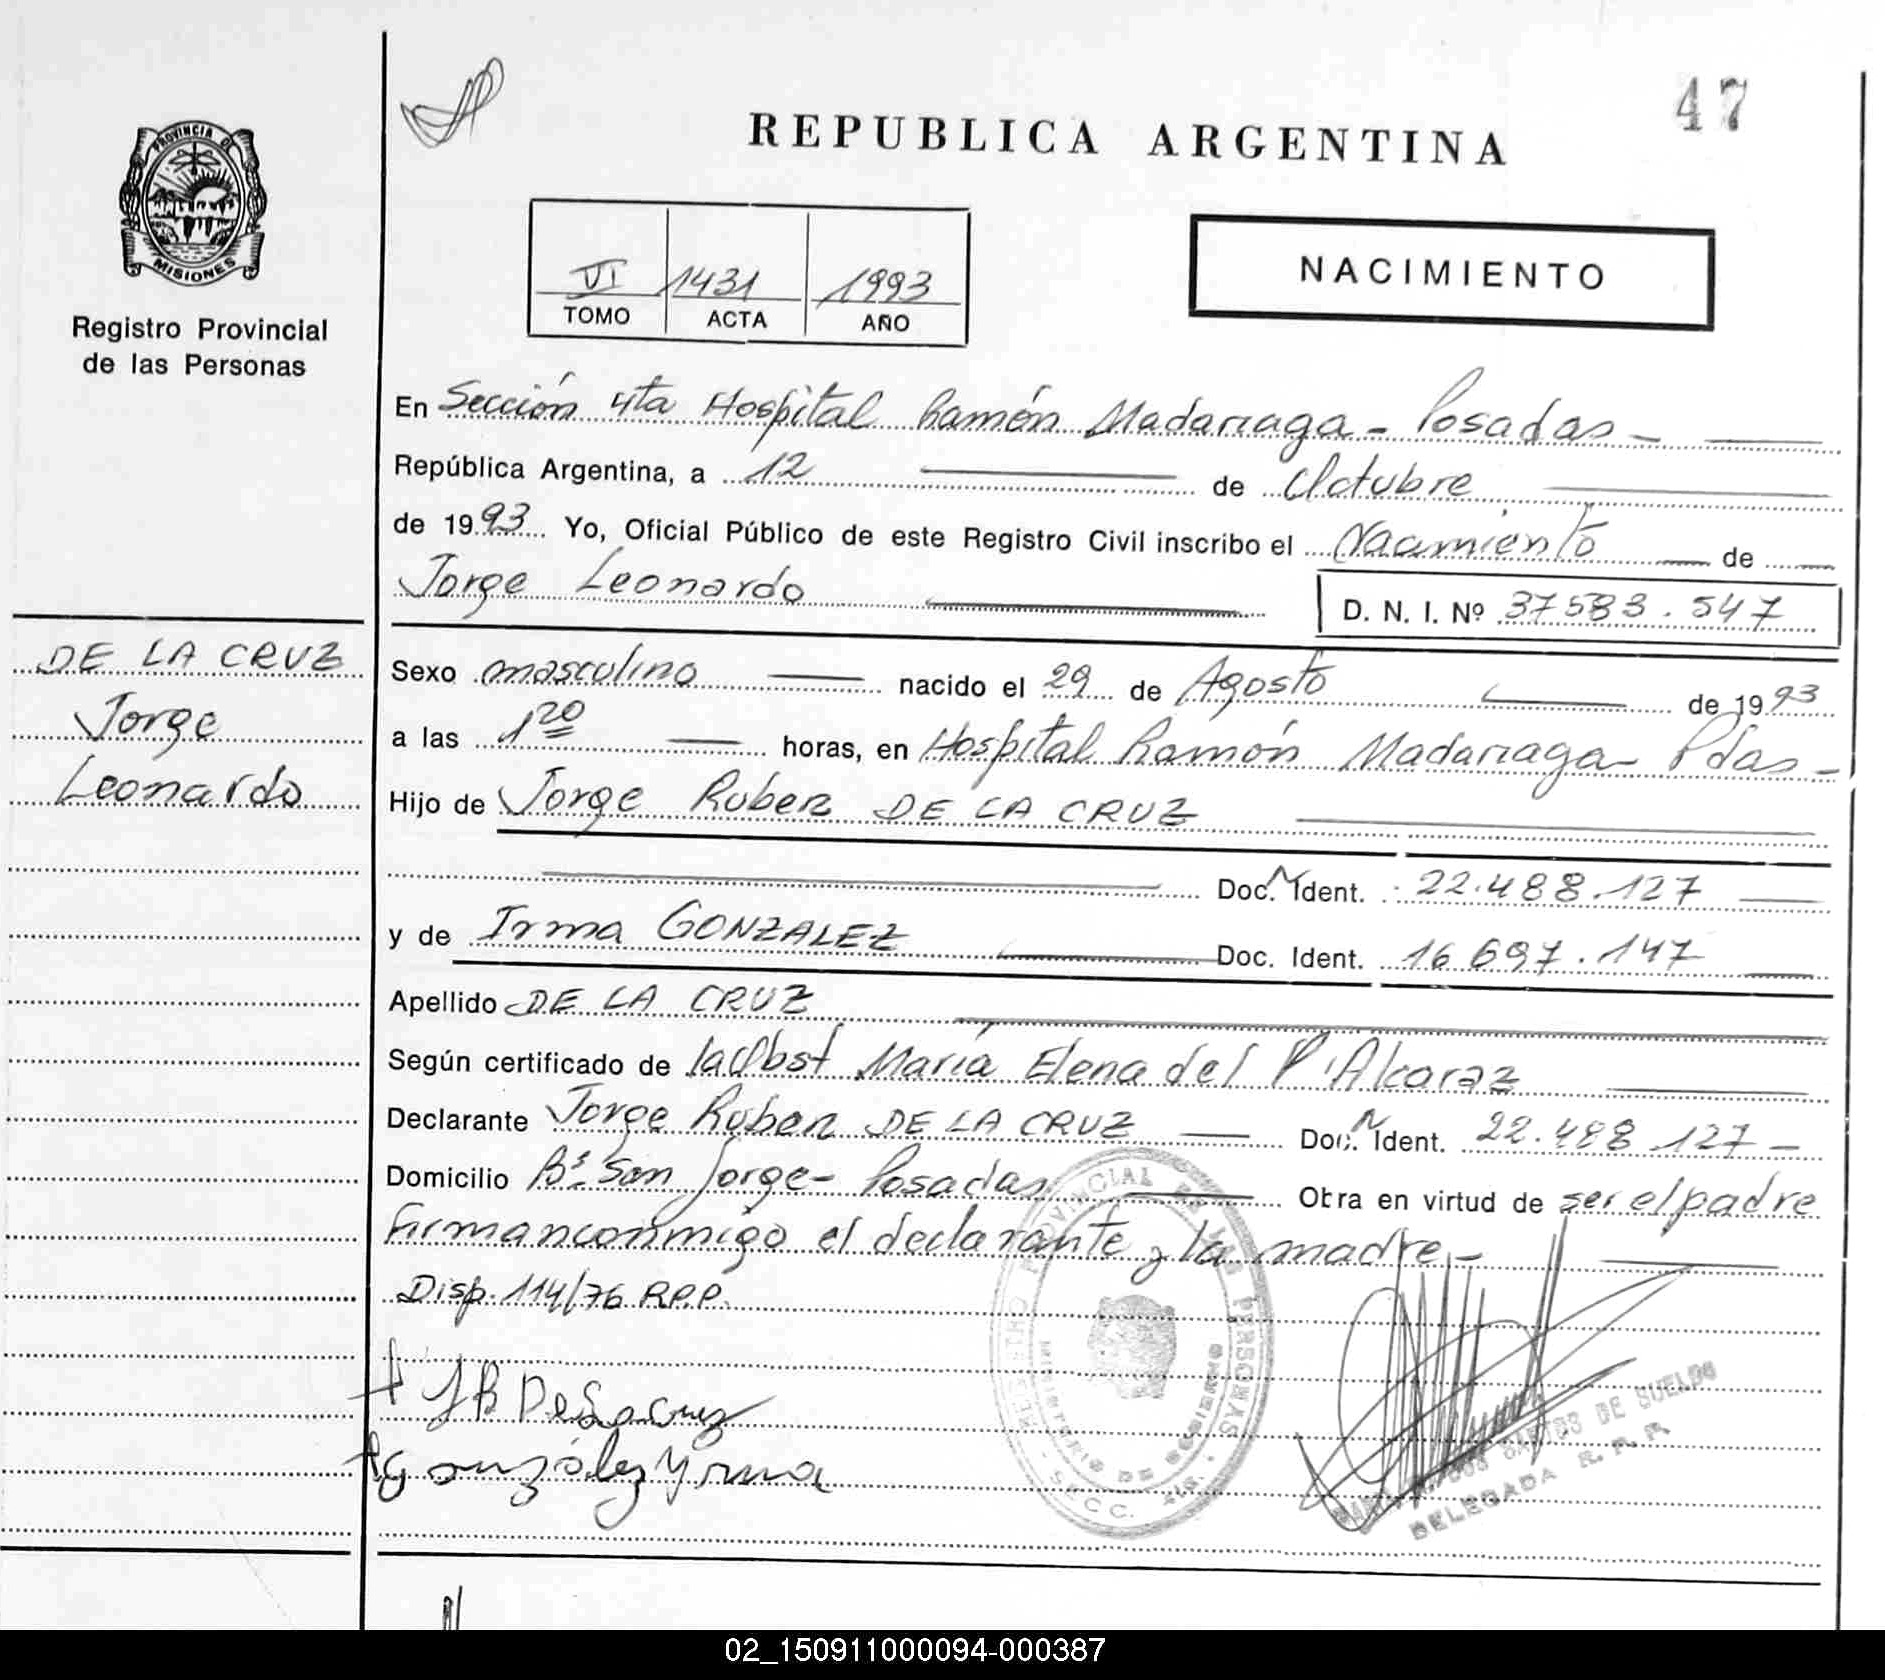 47
REPUBLICA ARGENTINA
PROVINCIA DE
MISIONES
Registro Provincial
de las Personas
VI 1431 1993
TOMO ACTA AÑO
NACIMIENTO
En Sección 4ta Hospital Ramón Madariaga - Posadas -
República Argentina, a 12 de Octubre
de 1993 Yo, Oficial Público de este Registro Civil inscribo el Nacimiento de
Jorge Leonardo D. N. I. Nº 37583.547
DE LA CRUZ
Jorge
Leonardo
Sexo masculino nacido el 29 de Agosto de 1993
a las 1 20 horas, en Hospital Ramón Madariaga - Pdas -
Hijo de Jorge Ruben DE LA CRUZ
Doc. Ident. 22.488.127
y de Irma GONZALEZ Doc. Ident. 16 697.147
Apellido DE LA CRUZ
Según certificado de la Obst María Elena del P. Alcaraz
Declarante Jorge Ruben DE LA CRUZ Doc. Ident. 22.488.127 -
Domicilio Bº San Jorge - Posadas Obra en virtud de ser el padre
firman conmigo el declarante y la madre -
Disp. 114/76 R.P.P.
J R De La Cruz
González Yrma
REGISTRO PROVINCIAL DE LAS PERSONAS
MINISTERIO DE GOBIERNO
SECC.
SANTOS DE SUELDO
DELEGADA R. P. P.
02_150911000094-000387